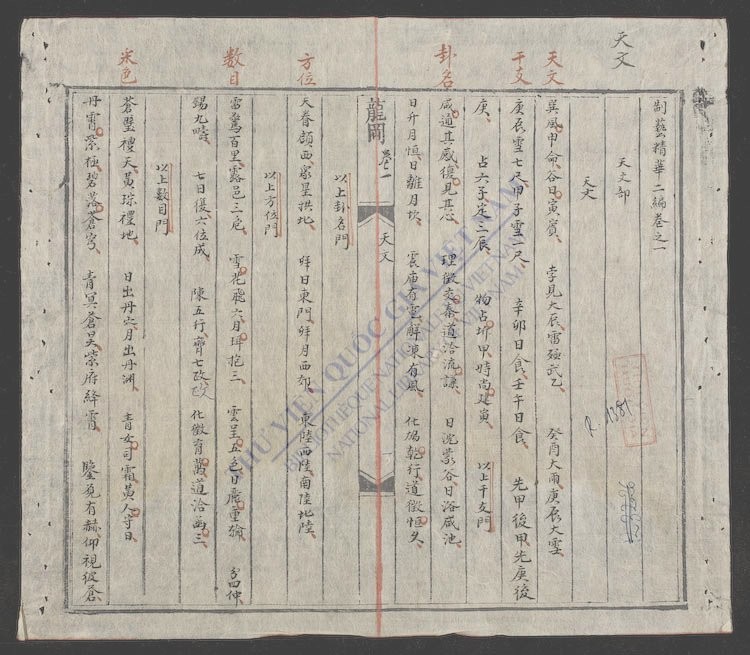 天文
制藝精華二編卷之一
天文部
天文
天文
巽風申命、谷日寅賓、 孛見大辰、雷強武乙、 癸酉大雨、庚辰大雪
干支
庚辰雪七尺、甲子雪一尺、 辛卯日食、壬午日食、 先甲後甲、先庚後
庚、 占六子、定二辰、 物占圻甲、時尚建寅、 以上干支門
卦名
咸道其感、復見其心、 理徵交泰、道洽流謙、 日沈蒙谷、日浴咸池、
日升月恒、日離月坎、 雲庙有電、解凍有風、 化歸乾行、道徵恒久、
以上卦名門
龍岡 卷一 天文
方位
天眷顧西、眾星拱北、 拜日東門、拜月西郊、 東陸西陸、南陸北陸、
以上方位門
數目
雷驚百里、露邑三危、 雪花飛六、月珥抱三、 雲呈五色、日慶重輪、 分四仲、
錫九疇、 七日復、六位成、 陳五行、齊七政、 化徵育萬、道洽函三、
以上數目門
采色
蒼璧禮天、黃琮禮地、 日出丹穴、月出丹淵、 青女司霜、黃人守日、
丹霄紫極、碧落蒼穹、 青冥蒼昊、紫府絳霄、 鑒覓有赫、仰視彼蒼
R. 1381
THƯ VIỆN QUỐC GIA VIỆT NAM
BIBLIOTHÈQUE NATIONALE DU VIETNAM
NATIONAL LIBRARY OF VIETNAM